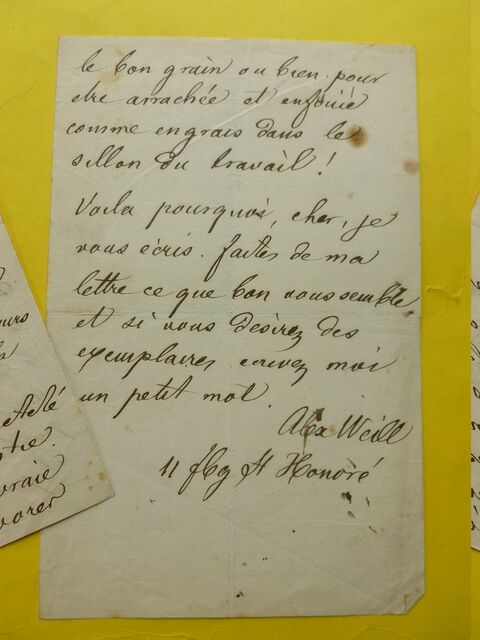 le bon grain ou bien pour
etre arrachée et enfouie
comme engrais dans le
sillon du travail !
Voila pourquoi, cher, je
vous écris. faites de ma
lettre ce que bon vous semble
et si vous désirez des
exemplaires ecrivez moi
un petit mot.
Alex Weill
11 fbg St Honoré
urs
la
Acté
tre.
vraie
vorer